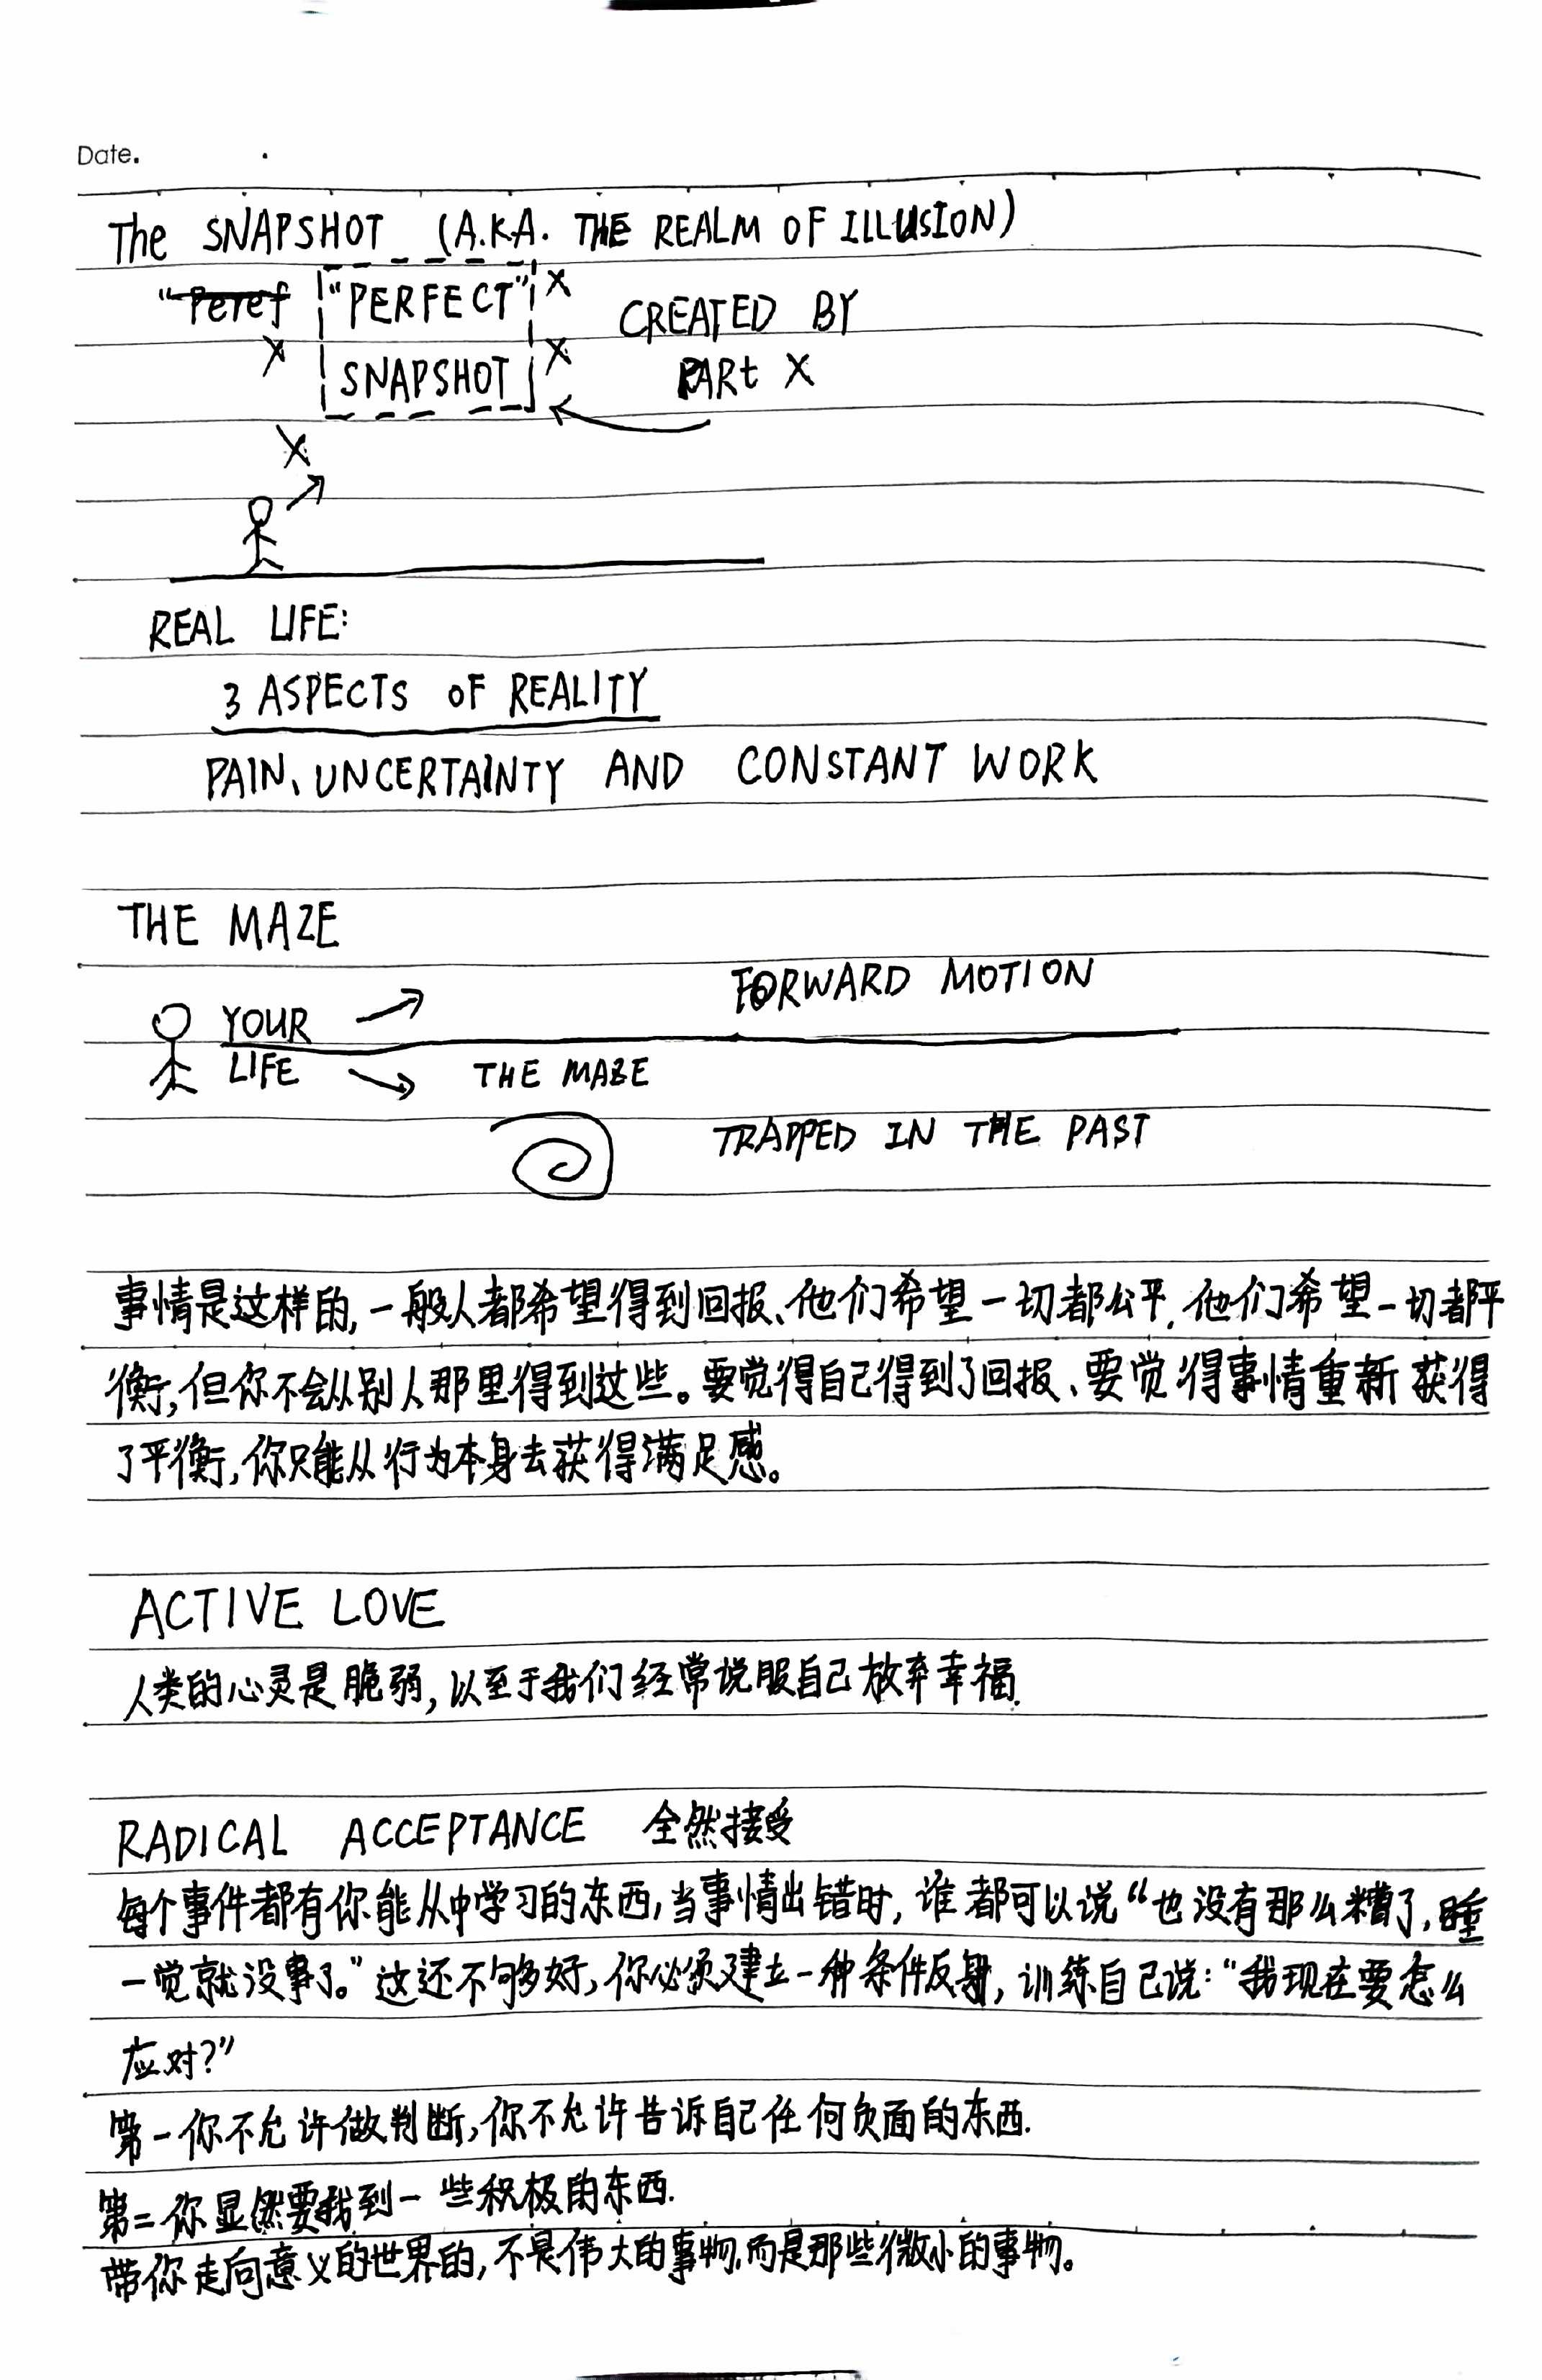 Date.
The SNAPSHOT (A.K.A. THE REALM OF ILLUSION)
"Peref "PERFECT" X CREATED BY
X SNAPSHOT X PARt X
X
REAL LIFE:
3 ASPECTS OF REALITY
PAIN、UNCERTAINTY AND CONSTANT WORK
THE MAZE
FORWARD MOTION
YOUR
LIFE THE MAZE
TRAPPED IN THE PAST
事情是这样的,一般人都希望得到回报、他们希望一切都公平,他们希望一切都平
衡,但你不会从别人那里得到这些。要觉得自己得到了回报、要觉得事情重新获得
了平衡,你只能从行为本身去获得满足感。
ACTIVE LOVE
人类的心灵是脆弱,以至于我们经常说服自己放弃幸福.
RADICAL ACCEPTANCE 全然接受
每个事件都有你能从中学习的东西,当事情出错时,谁都可以说“也没有那么糟了,睡
一觉就没事了。”这还不够好,你必须建立一种条件反射,训练自己说:“我现在要怎么
应对?”
第一你不允许做判断,你不允许告诉自己任何负面的东西.
第二你显然要找到一些积极的东西.
带你走向意义的世界的,不是伟大的事物,而是那些微小的事物。